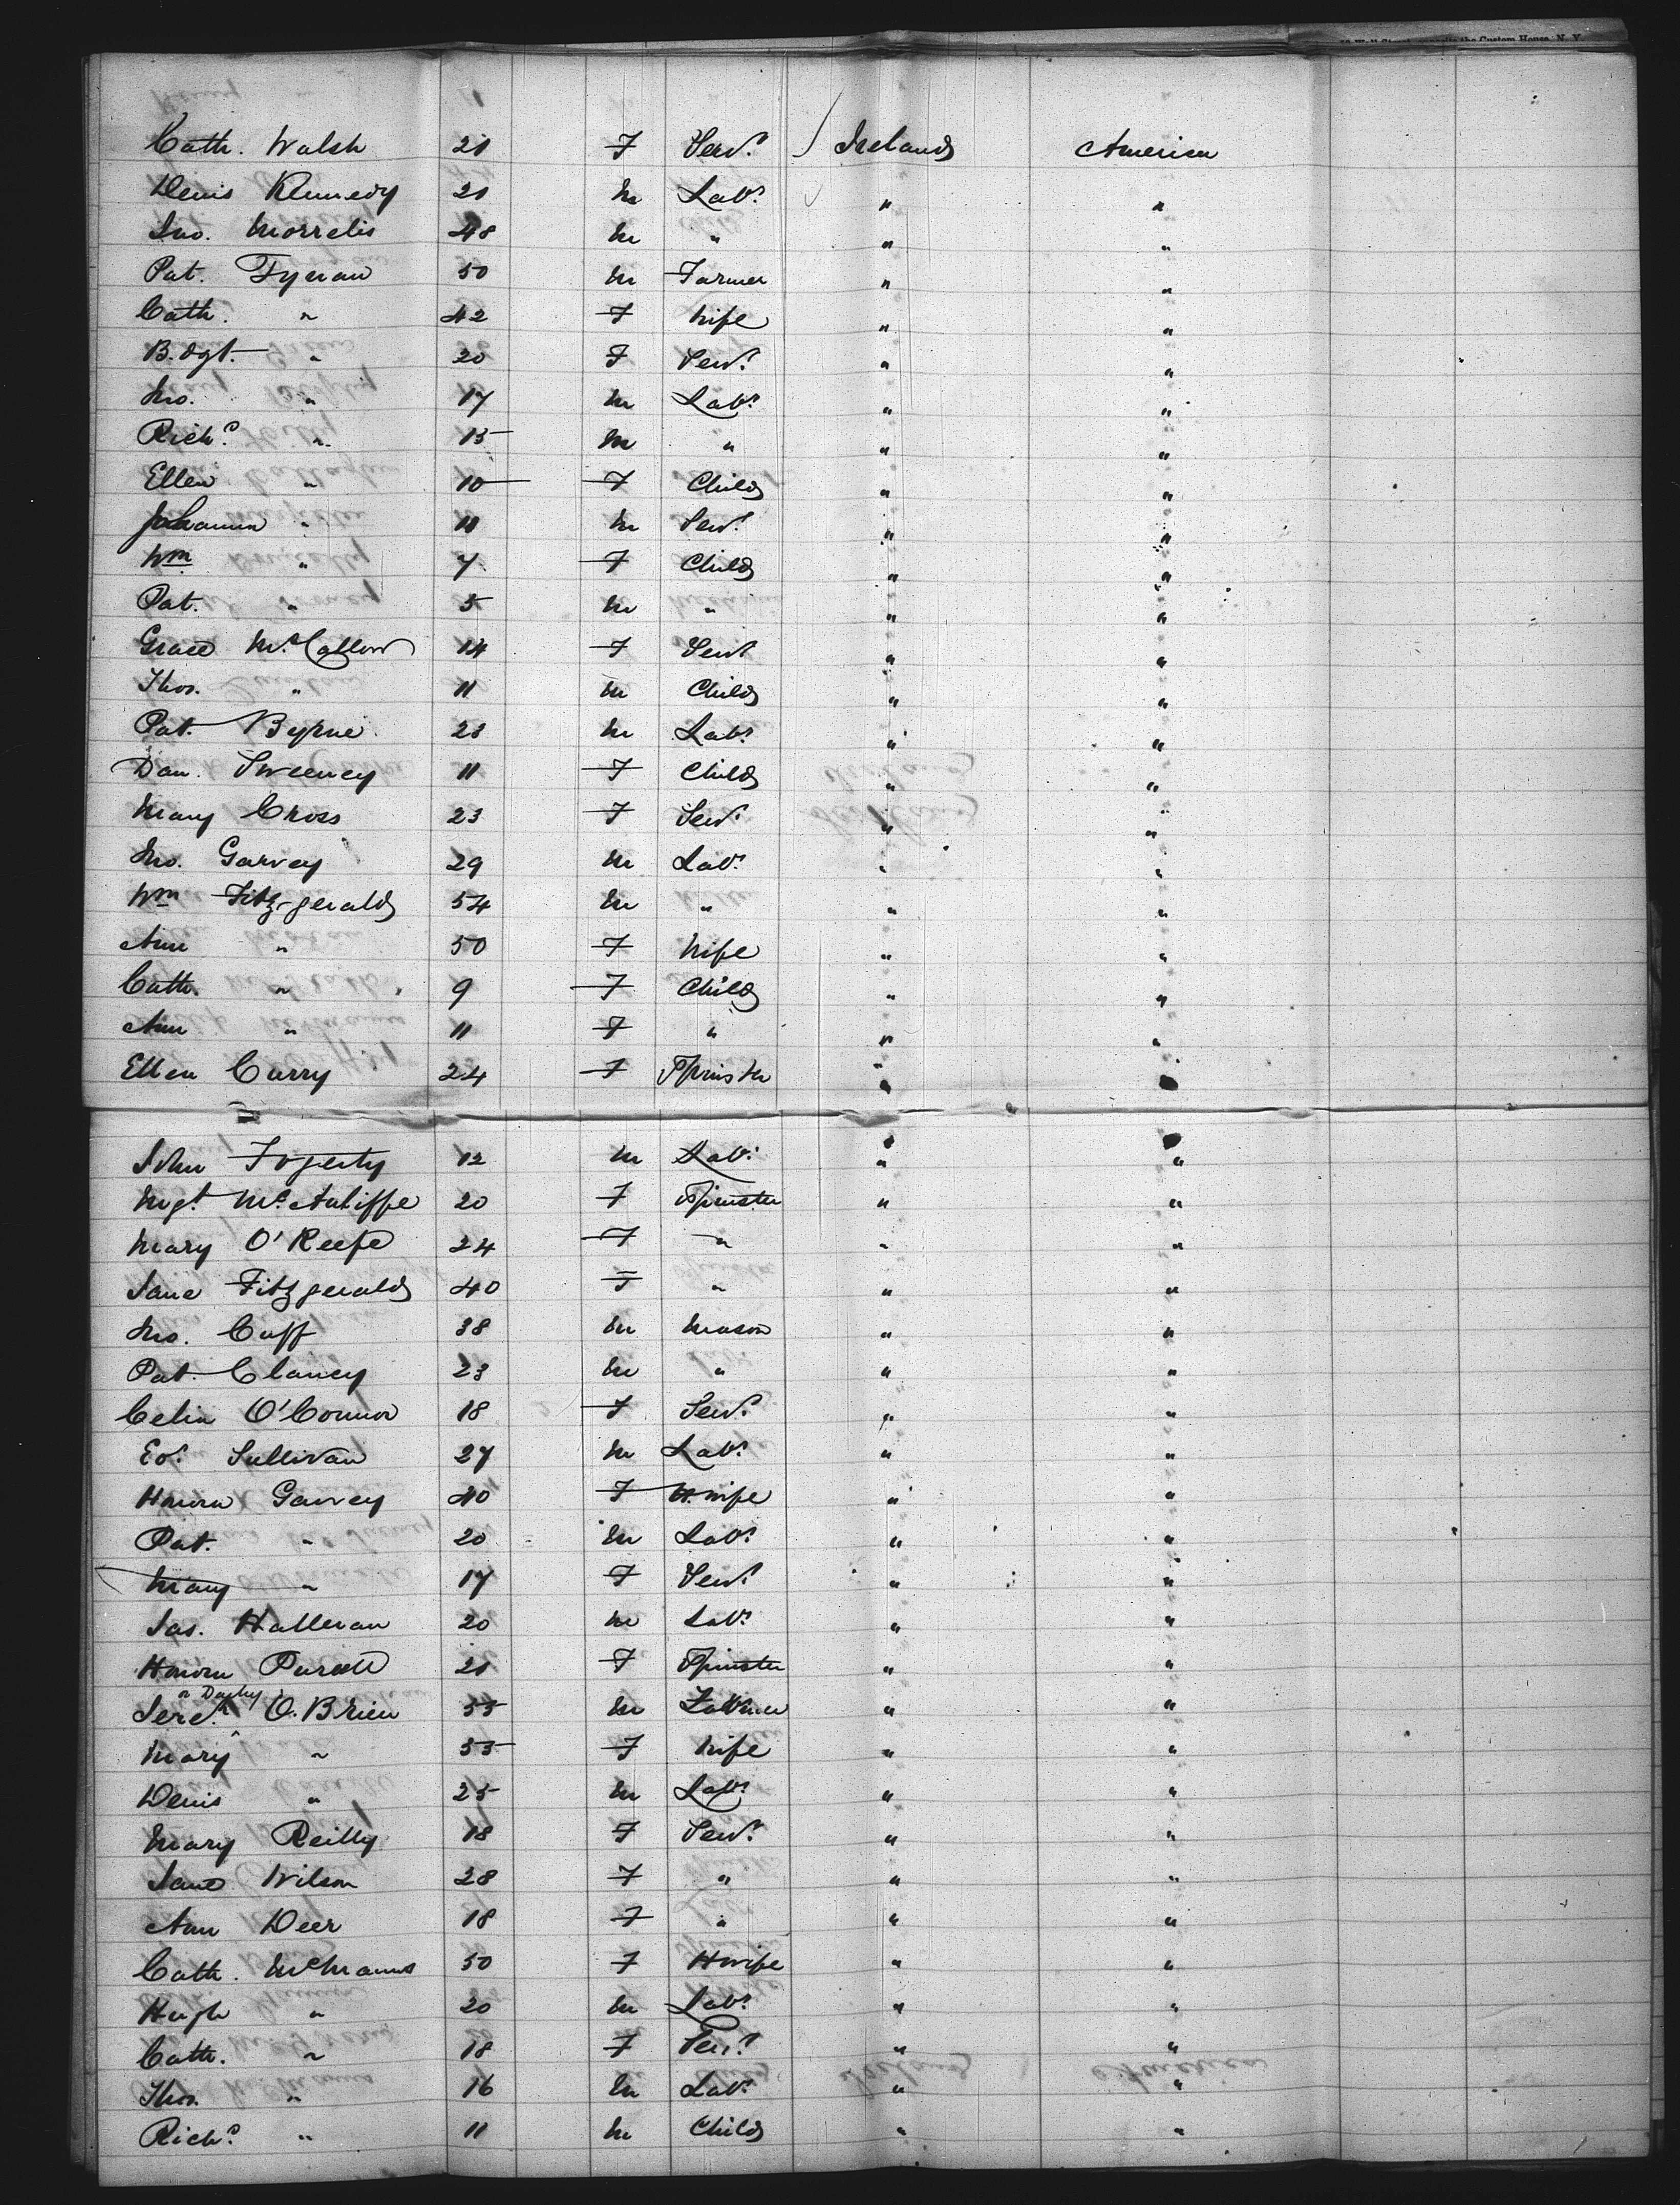 Custom House, N. Y.
Cath. Walsh 21 F Servt. Ireland America
Denis Kennedy 21 M Labr. " "
Jno. Morrelis 48 M " " "
Pat. Tynan 50 M Farmer " "
Cath. " 42 F Wife " "
B.dgt. " 20 F Servt. " "
Jno. " 17 M Labr. " "
Richd. " 15 M " " "
Ellen " 10 F Child " "
Johanna " 11 M Servt. " "
Wm " 7 F Child " "
Pat. " 5 M " " "
Grace McCallow 14 F Servt " "
Thos. " 11 M Child " "
Pat. Byrne 23 M Labr. " "
Dan. Sweeney 11 F Child " "
Mary Cross 23 F Servt. " "
Jno. Garvey 29 M Labr. " "
Wm Fitz-gerald 54 M " " "
Ann " 50 F Wife " "
Cath. " 9 F Child " "
Ann " 11 F " " "
Ellen Curry 24 F Spinster " "
John Fogerty 12 M Labr. " "
Mgt. McAuliffe 20 F Spinster " "
Mary O'Keefe 24 F " " "
Jane Fitzgerald 40 F " " "
Jno. Cuff 38 M Mason " "
Pat. Clancy 23 M " " "
Celia O'Connor 18 F Servt. " "
Ed. Sullivan 27 M Labr. " "
Honora Garvey 40 F H.wife " "
Pat. " 20 M Labr. " "
Mary " 17 F Servt. " "
Jas. Halleran 20 M Labr. " "
Honora Purcell 21 F Spinster " "
Jereh. n Darby O.Brien 55 M " "
Mary " 55 F Wife " "
Denis " 25 M Labr. " "
Mary Reilly 18 F Servt. " "
Jane Wilson 28 F " " "
Ann Deer 18 F " " "
Cath. McManus 50 F Hwife " "
Hugh " 20 M Labr. " "
Cath. " 18 F Servt. " "
Thos. " 16 M Labr. " "
Richd. " 11 M Child " "